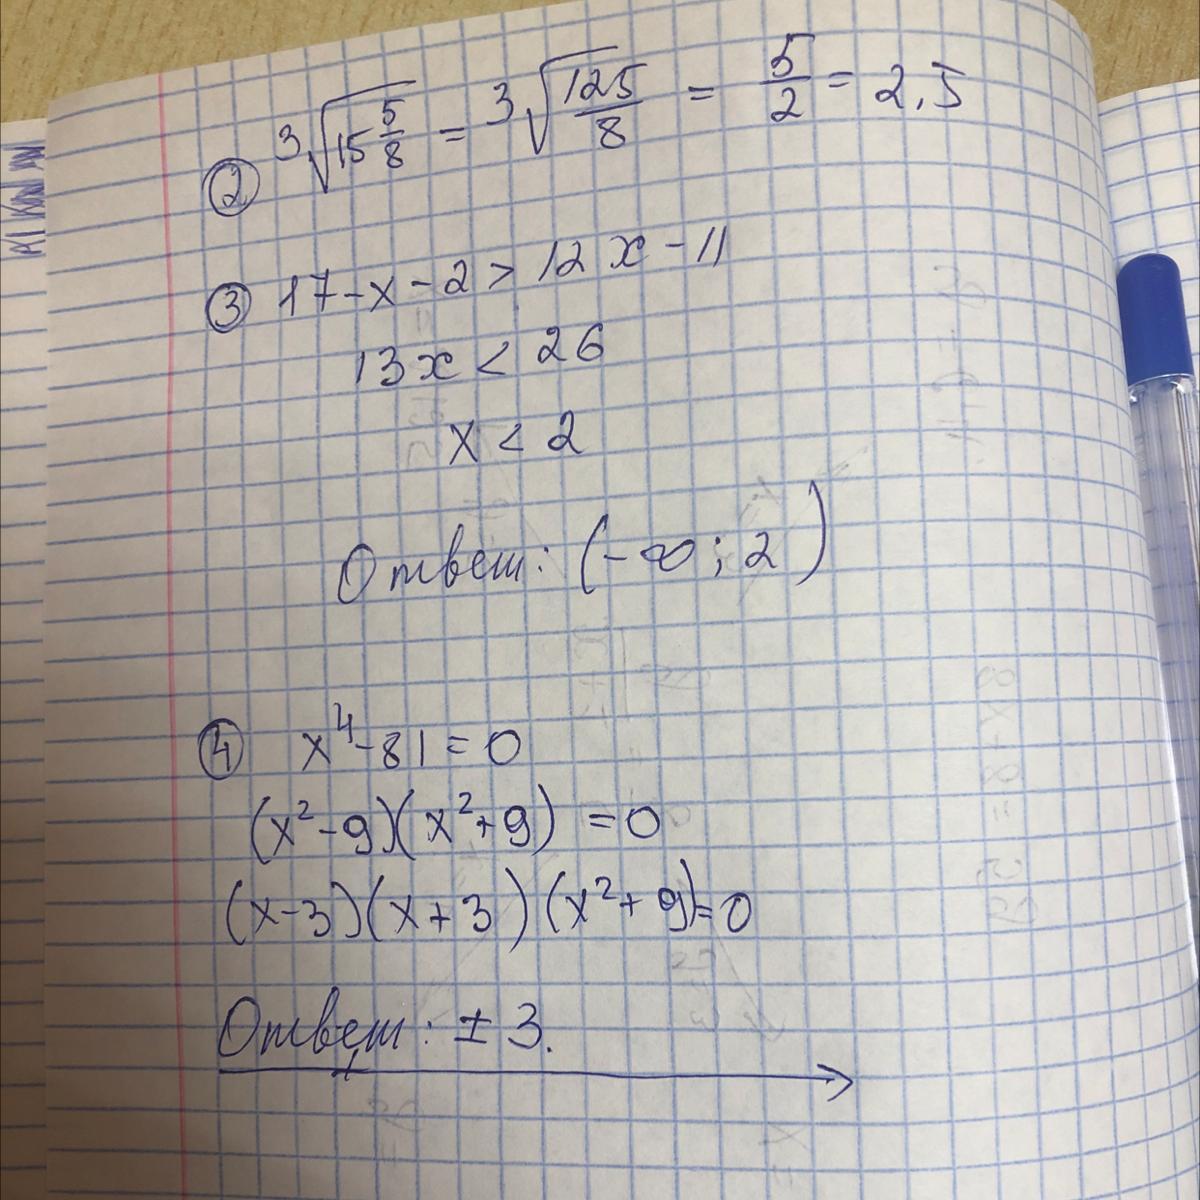 ② ∛15 5/8 = ∛125/8 = 5/2 = 2,5
③ 17-x-2 > 12x-11
13x < 26
x < 2
Ответ: (-∞; 2)
④ x⁴-81=0
(x²-9)(x²+9) =0
(x-3)(x+3)(x²+9)=0
Ответ: ±3.